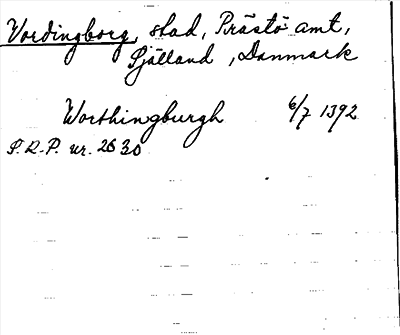 Vordingborg, stad, Prästö amt,
Själland, Danmark
Worthingburgh 6/7 1392
S.R.P. nr. 2630